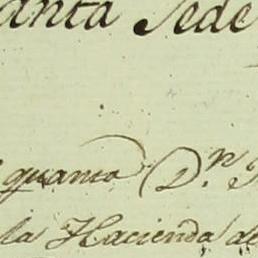 anta Sede
quanto D.n
la Hacienda de